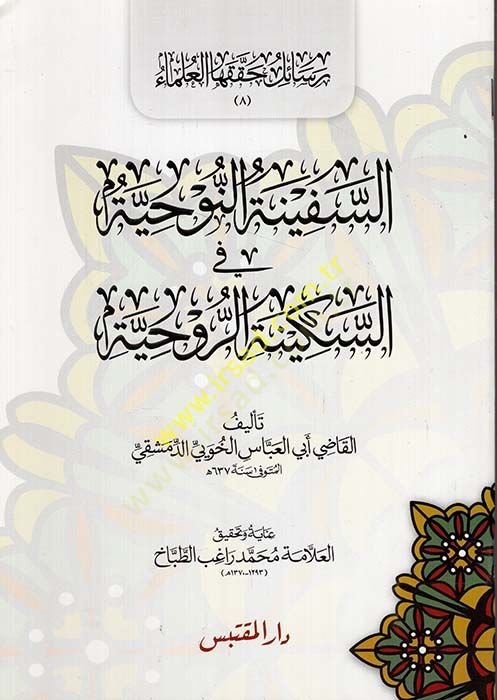 رسائل حققها العلماء
(٨)
السَّفِينَةُ النُّوحِيَّةُ
فِي
السَّكِينَةِ الرُّوحِيَّةِ
تأليفُ
القَاضِي أَبِي العَبَّاسِ الخُوَيِّيِّ الدِّمَشْقِيِّ
المتوفى سنة ٦٣٧هـ
عناية وتحقيق
العلَّامة محمَّد راغب الطَّبَّاخ
(١٢٩٣-١٣٧٠هـ)
دار المقتبس